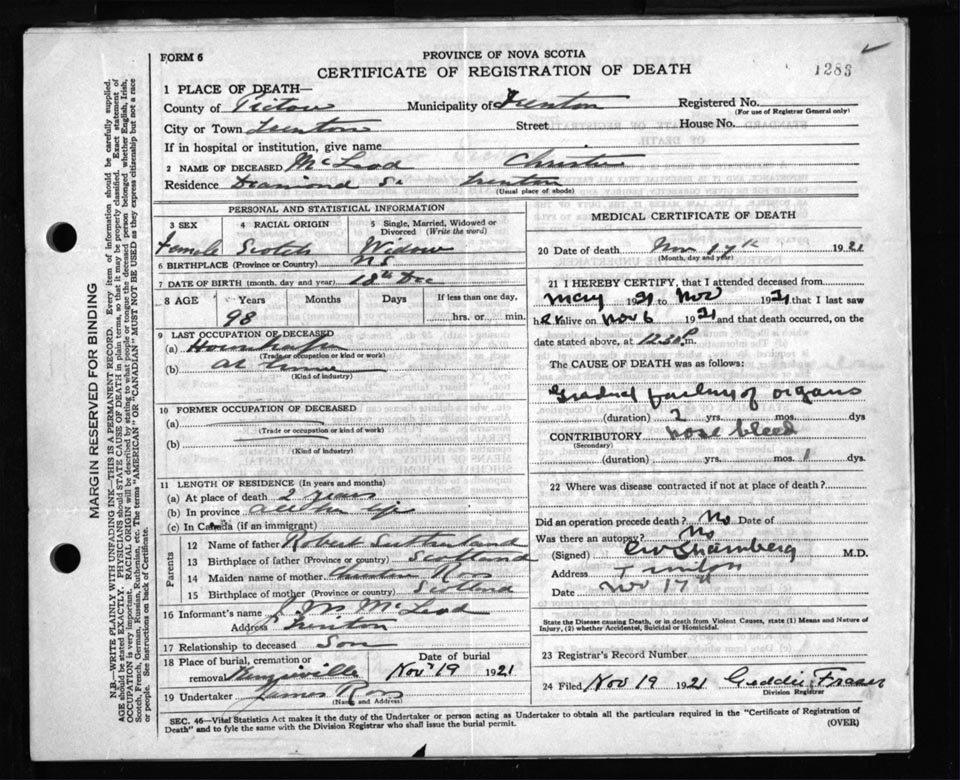 FORM 6
PROVINCE OF NOVA SCOTIA
CERTIFICATE OF REGISTRATION OF DEATH
1283
1 PLACE OF DEATH—
County of Pictou Municipality of Trenton Registered No.
(For use of Registrar General only)
City or Town Trenton Street House No.
If in hospital or institution, give name
2 NAME OF DECEASED McLeod Christie
Residence Diamond St Trenton
(Usual place of abode)
PERSONAL AND STATISTICAL INFORMATION
3 SEX 4 RACIAL ORIGIN 5 Single, Married, Widowed or Divorced (Write the word)
Female Scotch Widow
6 BIRTHPLACE (Province or Country) N.S.
7 DATE OF BIRTH (month, day and year) 18th Dec
8 AGE Years Months Days If less than one day,
98 hrs. or min.
9 LAST OCCUPATION OF DECEASED
(a)
(Trade or occupation or kind or work)
(b) at
(Kind of industry)
10 FORMER OCCUPATION OF DECEASED
(a)
(Trade or occupation or kind of work)
(b)
(Kind of industry)
11 LENGTH OF RESIDENCE (In years and months)
(a) At place of death 2 years
(b) In province all her life
(c) In Canada (if an immigrant)
Parents
12 Name of father Robert Sutherland
13 Birthplace of father (Province or Country) Scotland
14 Maiden name of mother Ross
15 Birthplace of mother (Province or Country) Scotland
16 Informant's name McLeod
Address Trenton
17 Relationship to deceased Son
18 Place of burial, cremation or removal Date of burial Nov 19 1921
19 Undertaker James Ross
(Name and Address)
MEDICAL CERTIFICATE OF DEATH
20 Date of death Nov 17th 1921
(Month, day and year)
21 I HEREBY CERTIFY, that I attended deceased from
May 1921 to Nov 1921 that I last saw
her alive on Nov 6 1921 and that death occurred, on the
date stated above, at 12.30 P m.
The CAUSE OF DEATH was as follows:
Gradual failing of organs
(duration) 2 yrs. mos. dys
CONTRIBUTORY nose bleed
(Secondary)
(duration) yrs. mos. 1 dys
22 Where was disease contracted if not at place of death?
Did an operation precede death? No Date of
Was there an autopsy? No
(Signed) M.D.
Address Trenton
Date Nov 17th
State the Disease causing Death, or in death from Violent Causes, state (1) Means and Nature of Injury, (2) whether Accidental, Suicidal or Homicidal.
23 Registrar's Record Number
24 Filed Nov 19 1921 Geddie Fraser
Division Registrar
SEC. 46—Vital Statistics Act makes it the duty of the Undertaker or person acting as Undertaker to obtain all the particulars required in the "Certificate of Registration of Death" and to fyle the same with the Division Registrar who shall issue the burial permit.
(OVER)
MARGIN RESERVED FOR BINDING
N.B.—WRITE PLAINLY WITH UNFADING INK—THIS IS A PERMANENT RECORD. Every item of information should be carefully supplied.
AGE should be stated EXACTLY. PHYSICIANS should STATE CAUSE OF DEATH in plain terms, so that it may be properly classified. Exact statement of
OCCUPATION is very important. RACIAL ORIGIN will be described by stating to what people or tongue the deceased person belonged whether English, Irish,
Scotch, French, German, Russian, Ruthenian, etc. The terms "AMERICAN" or "CANADIAN" MUST NOT BE USED as they express citizenship but not a race
or people. See instructions on back of Certificate.